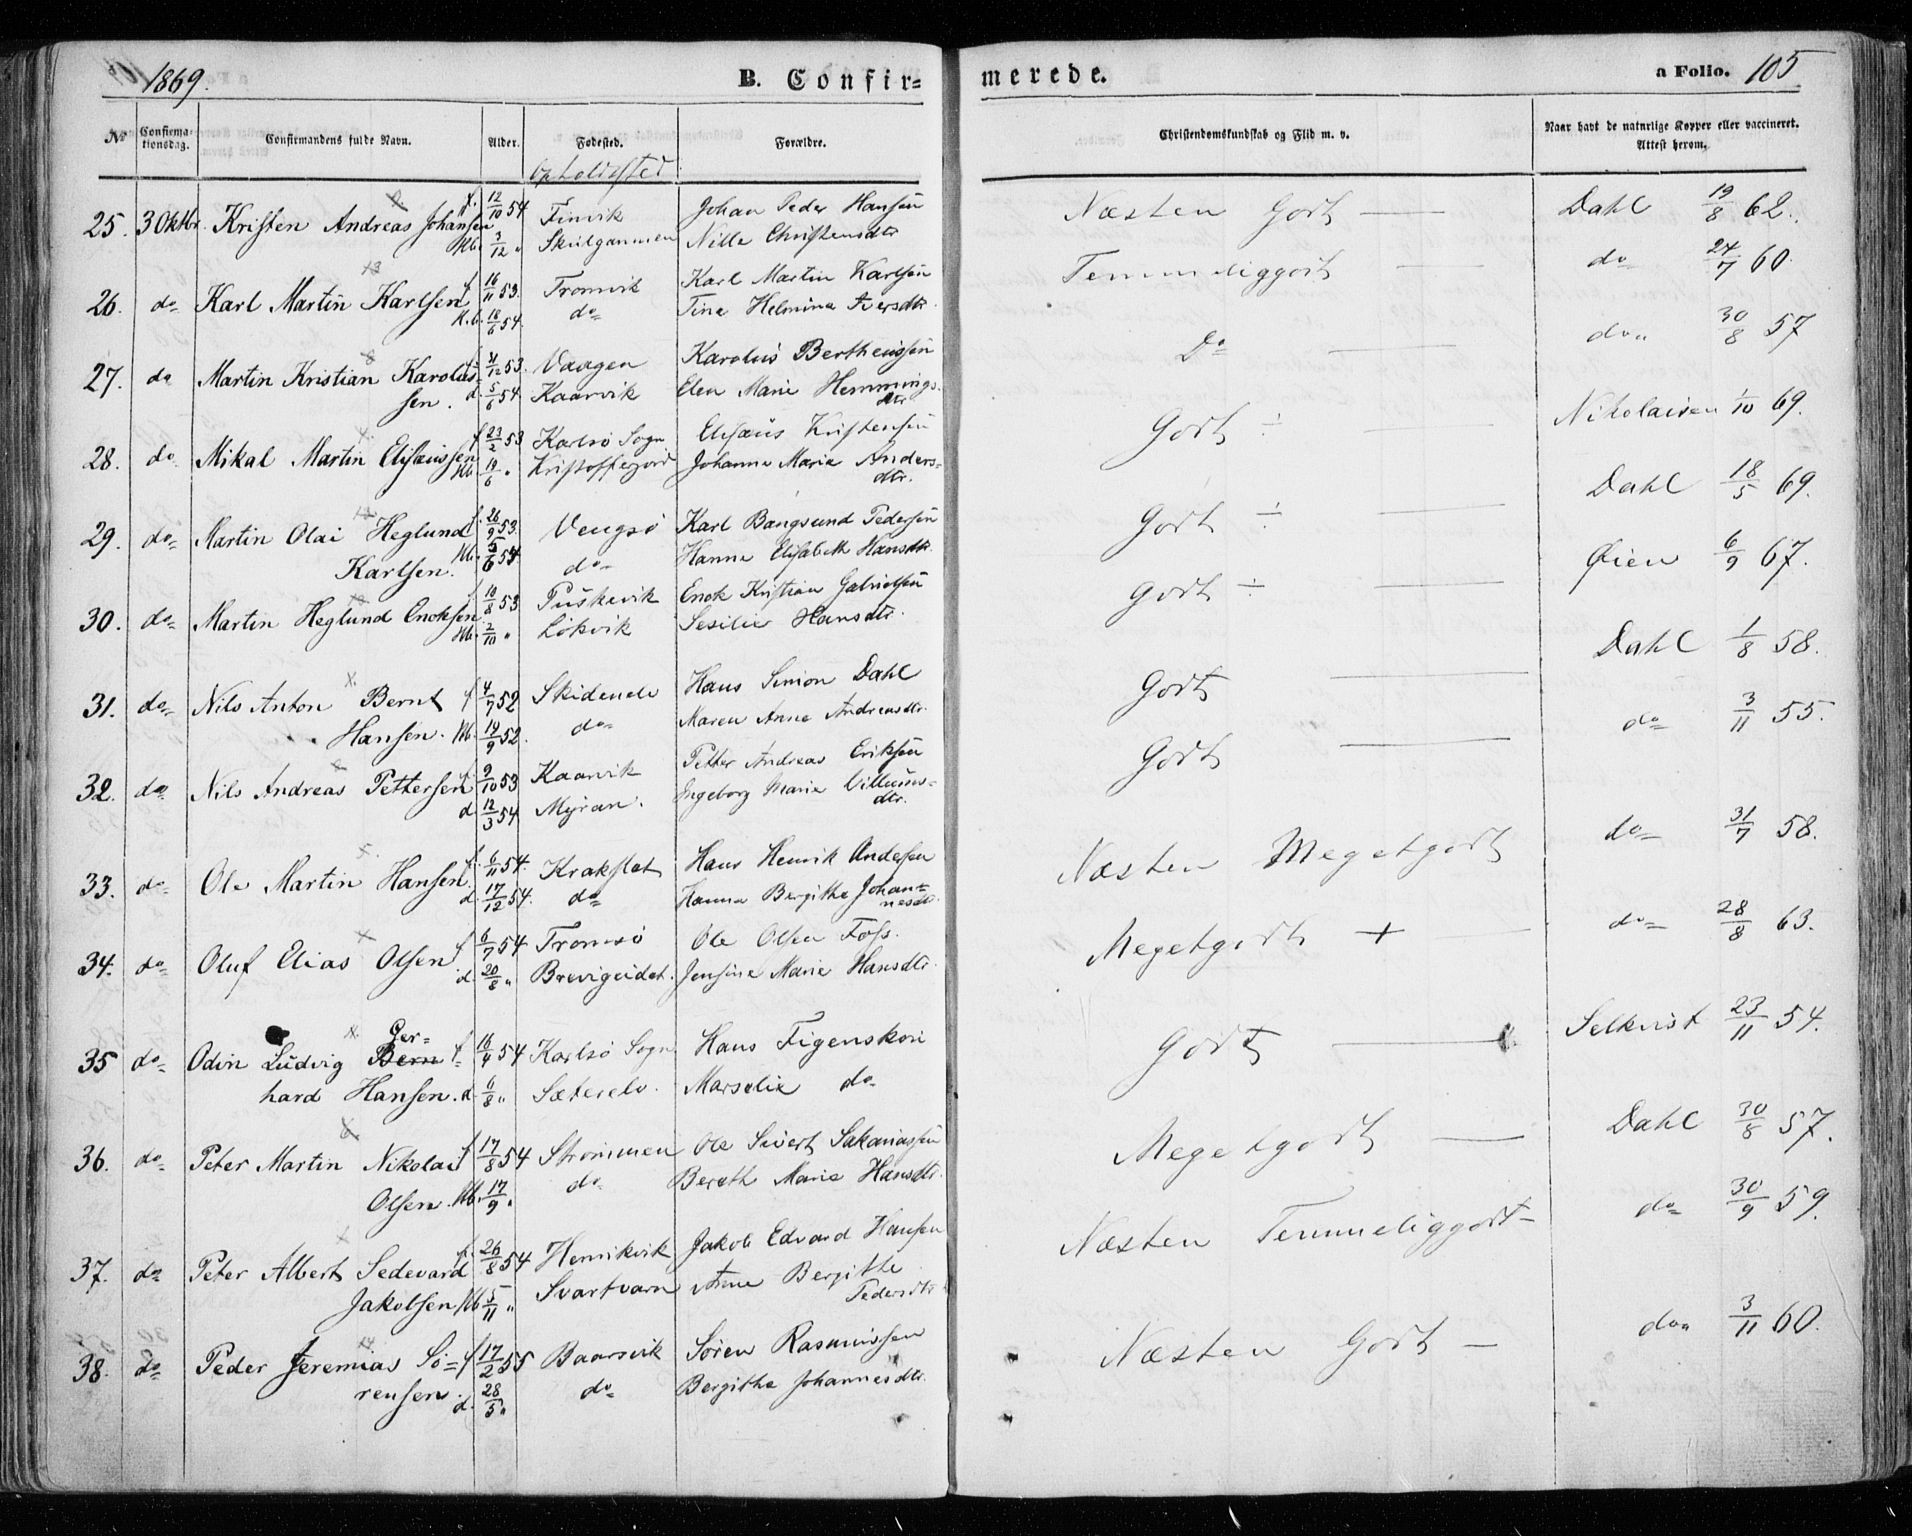 1869.
B. Confir=
merede.
a Folio. 105
No
Confirma-
tionsdag.
Confirmandens fulde Navn.
Alder.
Fødested.
Opholdssted
Forældre.
Christendomskundskab og Flid m. v.
Naar havt de naturlige Kopper eller vaccineret.
Attest herom.
25. 30 Oktbr. Kristen Andreas Johansen f. 12/10 54 Finvik Johan Peder Hansen Næsten Godt — Dahl 19/8 62.
Hb. 3/12 " Skulgammen Nille Christensdtr
26. do Karl Martin Karlsen f. 16/11 53. Tromvik Karl Martin Karlsen Temmeliggodt — do 24/7 60.
H.b. 18/6 54. do Tina Helmina Iversdtr.
27. do Martin Kristian Karolus- f. 4/12 53. Vaagen Karolus Bertheussen Do — do 30/8 57
sen. d. 5/6 54. Kaarvik Elen Marie Hemmings-
dtr
28. do Mikal Martin Elisæussen f. 23/2 53 Karlsö Sogn Elisæus Kristensen Godt ÷ — Nikolaisen 1/10 69.
Hb. 19/6 " Kristoffefjord Johanna Maria Anders=
dtr.
29. do Martin Olai Heglund f. 26/9 53. Vengsö Karl Bangsund Pedersen Godt ÷ — Dahl 18/5 69.
Karlsen. Hb. 5/6 54. do Hanna Elisabeth Hansdtr.
30. do Martin Heglund Enoksen f. 10/8 53 Puskevik Enok Kristian Gabrielsen Godt ÷ — Øien 6/9 67.
Hb. 2/10 " Lökvik Sesilie Hansdtr.
31. do Nils Anton Bernt f 4/7 52 Skidenelv Hans Simon Dahl Godt — Dahl 1/8 58.
Hansen. Hb. 19/9 52. do Maren Anna Andreasdtr.
32. do Nils Andreas Pettersen f. 9/10 53 Kaarvik Petter Andreas Eriksen Godt — do 3/11 55.
d 12/3 54 Myran. Ingeborg Marie Villums=
dtr.
33. do Ole Martin Hansen. f. 6/11 54. Krakflet Hans Henrik Andersen Næsten Megetgodt do 31/7 58.
d. 17/12 54. do Hanna Bergitha Johan=
nesdtr.
34. do Oluf Elias Olsen f 6/7 54 Tromsö Ole Olsen Foss. Megetgodt + — do 28/8 63.
d. 20/8 " Breivigeidet. Jensine Marie Hansdtr.
Ger-
35 do Odin Ludvig Bern f. 16/4 54 Karlsö Sogn Hans Figenskou Godt — Selkvist 23/11 54.
hard Hansen. d. 6/8 " Sæterelv. Marselie do
36. do Peter Martin Nikolai f 17/8 54 Strommen Ole Sivert Sakariassen Megetgodt — Dahl 30/8 57.
Olsen. Hb. 17/9 " do Bereth Marie Hansdtr.
37. do Peter Albert Sedevard f. 26/8 54 Henrikvik Jakob Edvard Hansen Næsten Temmeliggodt — do 30/9 59.
Jakobsen Hb 5/11 " Svartvarn Anne Bergitha
Pedersdtr
38. do Peder Jeremias Sö= f 17/2 55 Baarsvik Sören Rasmussen Næsten Godt — do 3/11 60.
rensen. d. 28/5 " do Bergitha Johannesdtr.